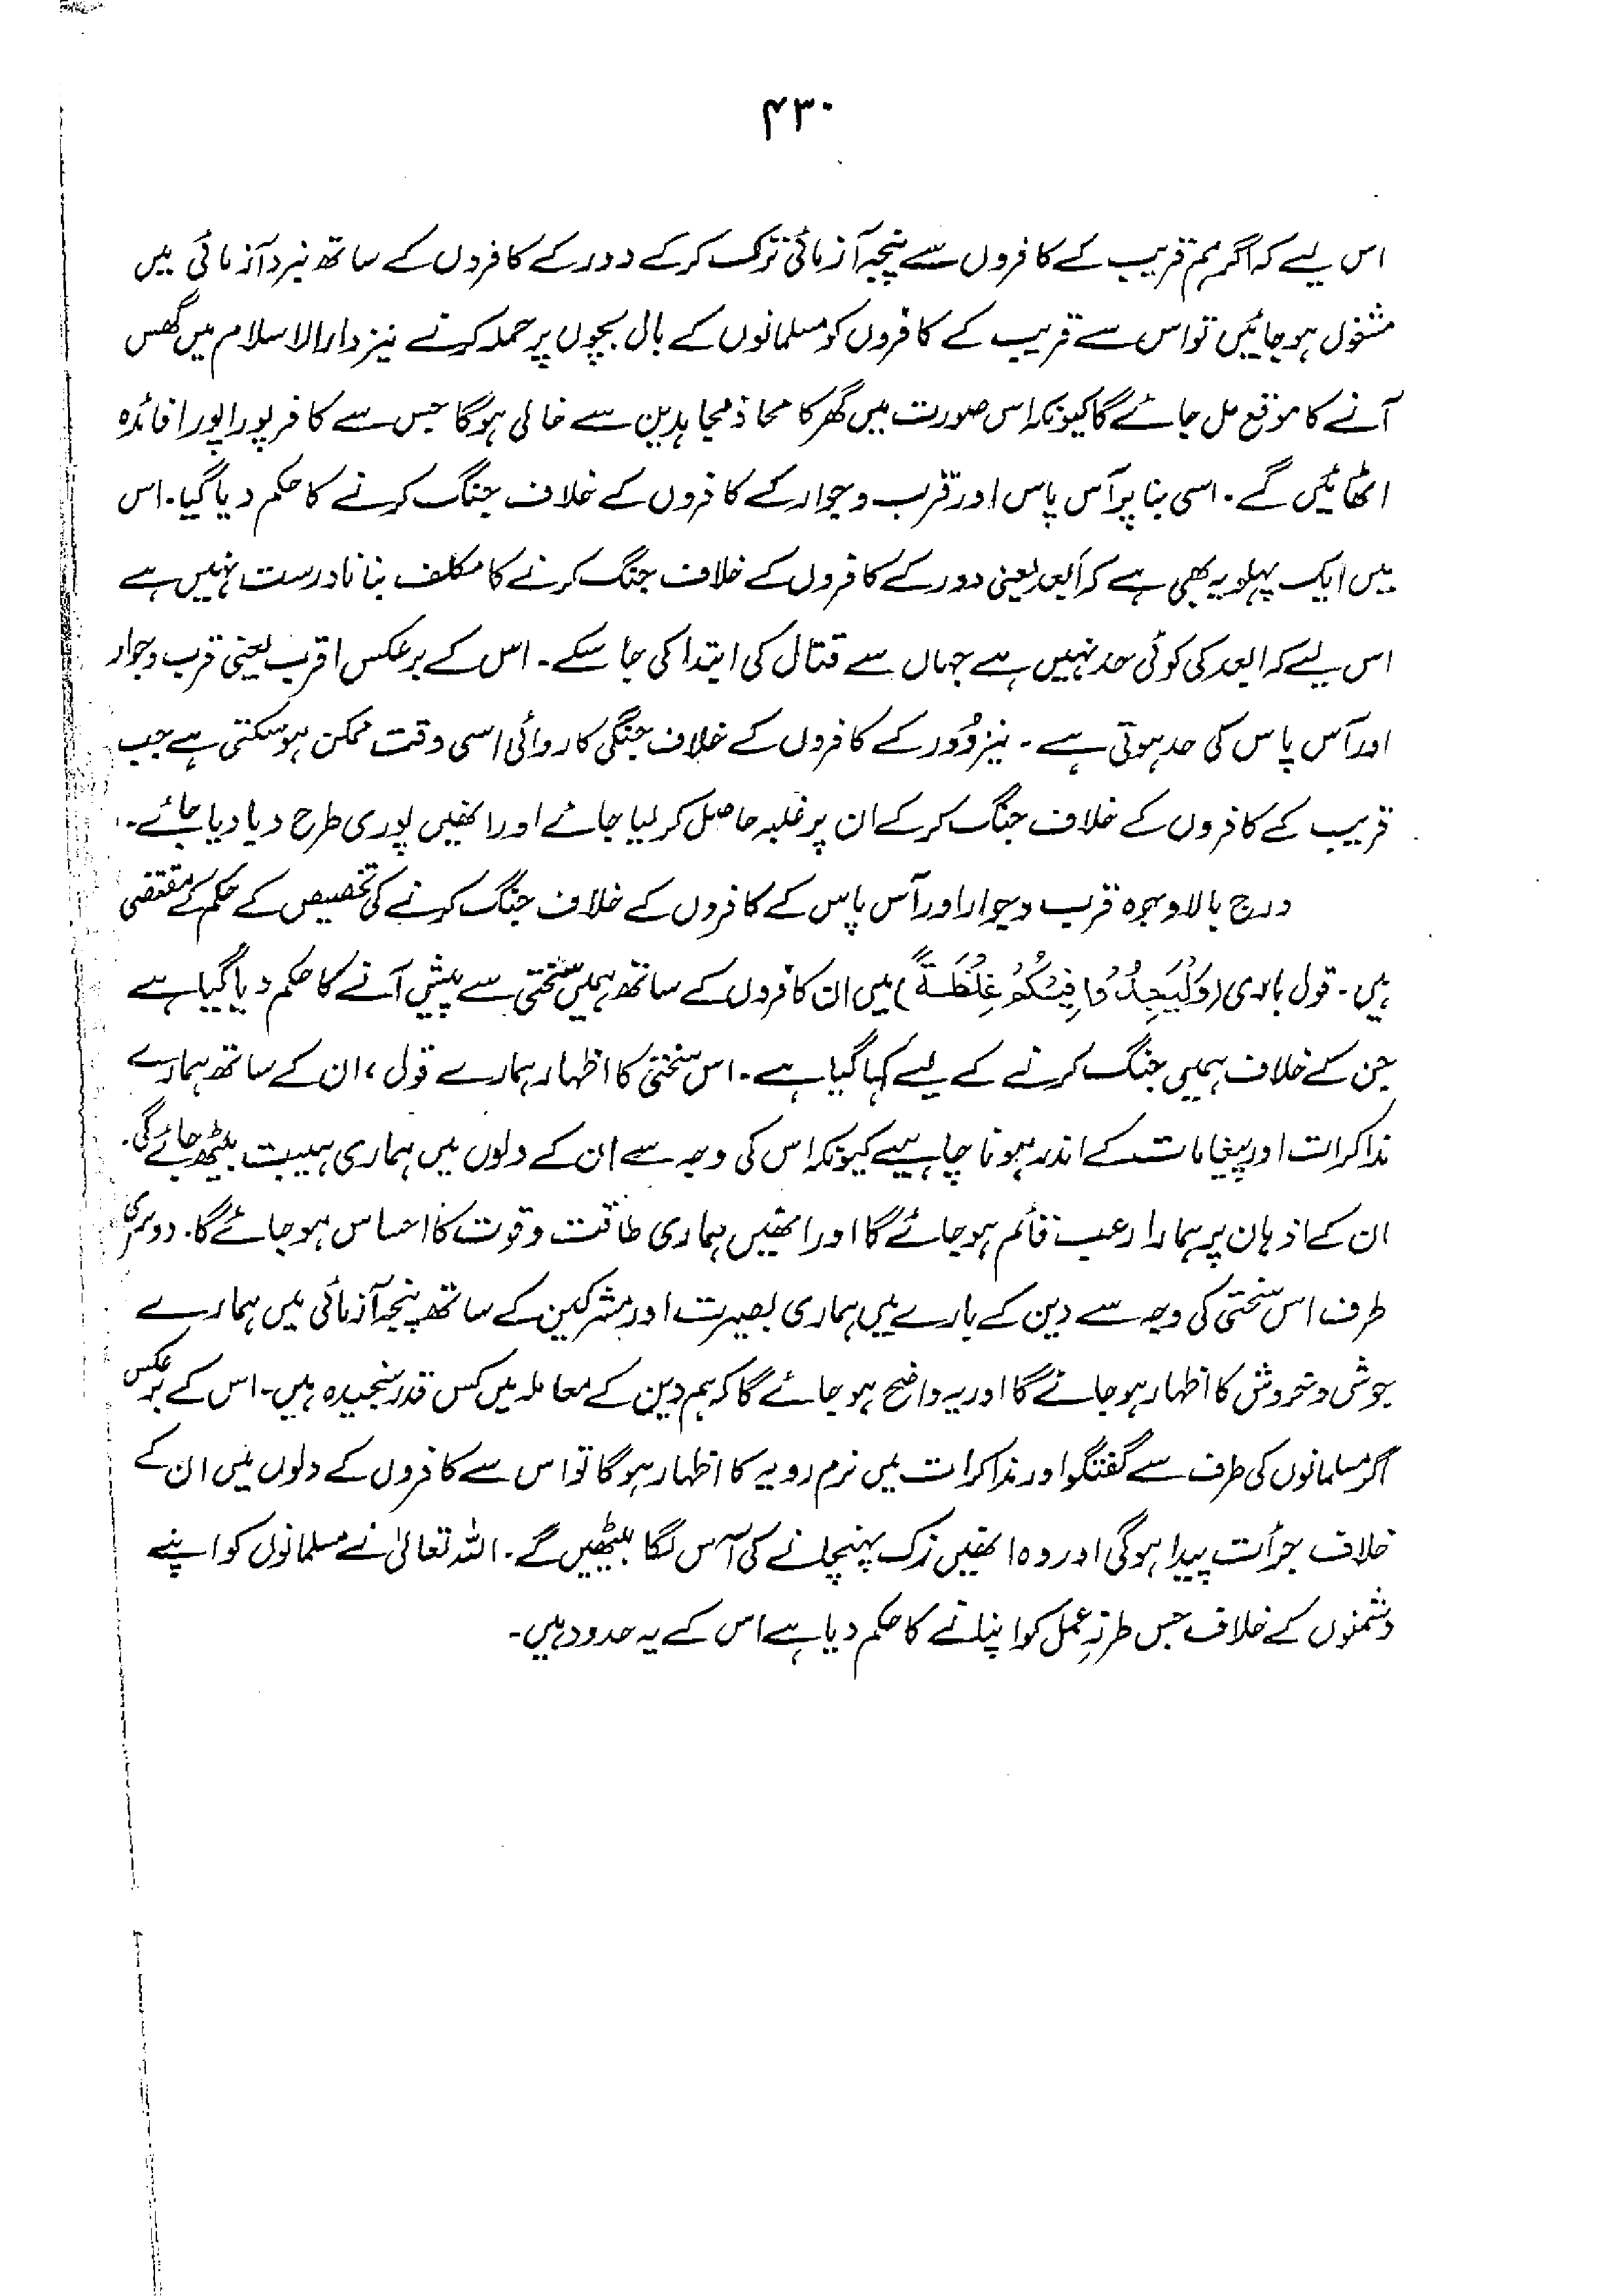 ۴۳۰
اس لیے کہ اگر ہم قریب کے کافروں سے پنجہ آزمائی ترک کرکے دور کے کافروں کے ساتھ نبرد آزمائی میں
مشغول ہو جائیں تو اس سے قریب کے کافروں کو مسلمانوں کے بال بچوں پر حملہ کرنے نیز دارالاسلام میں گھس
آنے کا موقع مل جائے گا کیونکہ اس صورت میں گھر کا محاذ مجاہدین سے خالی ہوگا جس سے کافر پورا پورا فائدہ
اٹھائیں گے۔ اسی بنا پر آس پاس اور قرب و جوار کے کافروں کے خلاف جنگ کرنے کا حکم دیا گیا۔ اس
میں ایک پہلو یہ بھی ہے کہ ابعد یعنی دور کے کافروں کے خلاف جنگ کرنے کا مکلف بنانا درست نہیں ہے
اس لیے کہ ابعد کی کوئی حد نہیں ہے جہاں سے قتال کی ابتدا کی جا سکے۔ اس کے برعکس اقرب یعنی قرب و جوار
اور آس پاس کی حد ہوتی ہے۔ نیز دُور کے کافروں کے خلاف جنگی کاروائی اسی وقت ممکن ہو سکتی ہے جب
قریب کے کافروں کے خلاف جنگ کرکے ان پر غلبہ حاصل کر لیا جائے اور انھیں پوری طرح دبا دیا جائے۔
درج بالا وجوہ قرب و جوار اور آس پاس کے کافروں کے خلاف جنگ کرنے کی تخصیص کے حکم کے مقتضی
ہیں۔ قول باری (وَلْیَجِدُوْا فِیْکُمْ غِلْظَةً) میں ان کافروں کے ساتھ ہمیں سختی سے پیش آنے کا حکم دیا گیا ہے
جن کے خلاف ہمیں جنگ کرنے کے لیے کہا گیا ہے۔ اس سختی کا اظہار ہمارے قول، ان کے ساتھ ہمارے
مذاکرات اور پیغامات کے اندر ہونا چاہیے کیونکہ اس کی وجہ سے ان کے دلوں میں ہماری ہیبت بیٹھ جائے گی۔
ان کے اذہان پر ہمارا رعب قائم ہو جائے گا اور انھیں ہماری طاقت و قوت کا احساس ہو جائے گا۔ دوسری
طرف اس سختی کی وجہ سے دین کے بارے میں ہماری بصیرت اور مشرکین کے ساتھ پنجہ آزمائی میں ہمارے
جوش و خروش کا اظہار ہو جائے گا اور یہ واضح ہو جائے گا کہ ہم دین کے معاملہ میں کس قدر سنجیدہ ہیں۔ اس کے برعکس
اگر مسلمانوں کی طرف سے گفتگو اور مذاکرات میں نرم رویہ کا اظہار ہوگا تو اس سے کافروں کے دلوں میں ان کے
خلاف جرأت پیدا ہوگی اور وہ انھیں زک پہنچانے کی آس لگا بیٹھیں گے۔ اللہ تعالیٰ نے مسلمانوں کو اپنے
دشمنوں کے خلاف جس طرزِ عمل کو اپنانے کا حکم دیا ہے اس کے یہ حدود ہیں۔